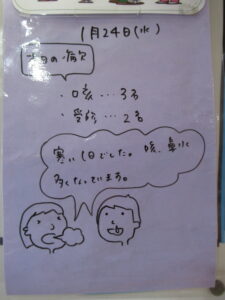 1月24日(水)
本日の病欠
・口咳…3名
・受診…2名
寒い1日でした。咳、鼻水
多くなっています。